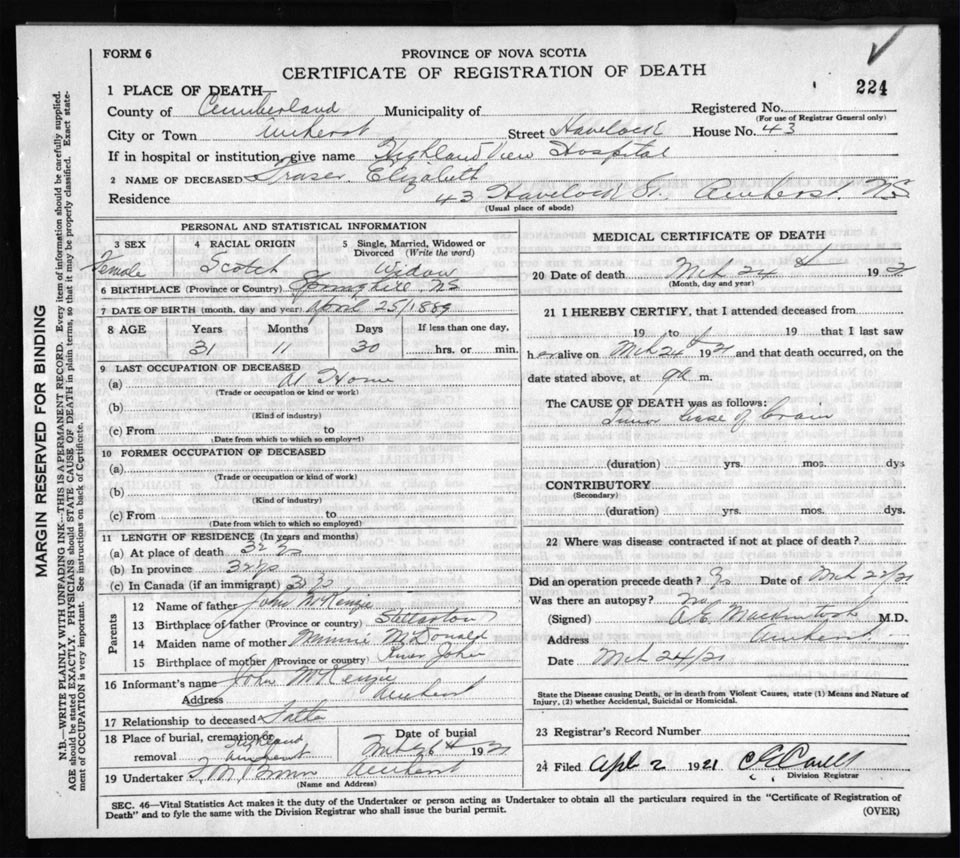 FORM 6
PROVINCE OF NOVA SCOTIA
CERTIFICATE OF REGISTRATION OF DEATH
224
1 PLACE OF DEATH
County of Cumberland Municipality of Registered No.
(For use of Registrar General only)
City or Town Amherst Street Havelock House No. 43
If in hospital or institution, give name Highland View Hospital
2 NAME OF DECEASED Fraser Elizabeth
Residence 43 Havelock St. Amherst NS
(Usual place of abode)
PERSONAL AND STATISTICAL INFORMATION
3 SEX 4 RACIAL ORIGIN 5 Single, Married, Widowed or Divorced (Write the word)
Female Scotch Widow
6 BIRTHPLACE (Province or Country) Springhill, NS
7 DATE OF BIRTH (month, day and year) April 25/1889
8 AGE Years Months Days If less than one day,
31 11 30 hrs. or min.
9 LAST OCCUPATION OF DECEASED
(a) At Home
(Trade or occupation or kind or work)
(b)
(Kind of industry)
(c) From to
(Date from which to which so employed)
10 FORMER OCCUPATION OF DECEASED
(a)
(Trade or occupation or kind of work)
(b)
(Kind of industry)
(c) From to
(Date from which to which so employed)
11 LENGTH OF RESIDENCE (In years and months)
(a) At place of death 32 yrs
(b) In province 32 yrs
(c) In Canada (if an immigrant) yrs
Parents
12 Name of father John McKenzie
13 Birthplace of father (Province or country) Stellarton
14 Maiden name of mother Minnie McDonald
15 Birthplace of mother (Province or country) River John
16 Informant's name John McKenzie
Address Amherst
17 Relationship to deceased Father
18 Place of burial, cremation or removal Highland Amherst
Date of burial Mch 26th 1921
19 Undertaker Amherst
(Name and Address)
MEDICAL CERTIFICATE OF DEATH
20 Date of death Mch 24th 192
(Month, day and year)
21 I HEREBY CERTIFY, that I attended deceased from
19 to 19 that I last saw
her alive on Mch 24th 1921 and that death occurred, on the
date stated above, at 9 a m.
The CAUSE OF DEATH was as follows:
Tumor base of brain
(duration) yrs. mos. dys
CONTRIBUTORY
(Secondary)
(duration) yrs. mos. dys.
22 Where was disease contracted if not at place of death?
Did an operation precede death? Yes Date of Mch 22/21
Was there an autopsy? no
(Signed) M.D.
Address Amherst
Date Mch 24/21
State the Disease causing Death, or in death from Violent Causes, state (1) Means and Nature of
Injury, (2) whether Accidental, Suicidal or Homicidal.
23 Registrar's Record Number
24 Filed Apl 2 1921
Division Registrar
SEC. 46—Vital Statistics Act makes it the duty of the Undertaker or person acting as Undertaker to obtain all the particulars required in the "Certificate of Registration of
Death" and to fyle the same with the Division Registrar who shall issue the burial permit.
(OVER)
MARGIN RESERVED FOR BINDING
N.B.—WRITE PLAINLY WITH UNFADING INK—THIS IS A PERMANENT RECORD. Every item of information should be carefully supplied.
AGE should be stated EXACTLY. PHYSICIANS should STATE CAUSE OF DEATH in plain terms, so that it may be properly classified. Exact state-
ment of OCCUPATION is very important. See instructions on back of Certificate.